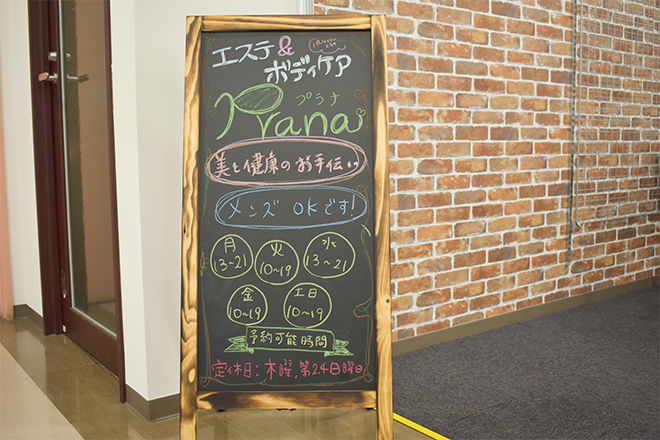 エステ&
ボディケア
プラナ
Prana
美と健康のお手伝い
メンズ OKです!
月 火 水
13~21 10~19 13~21
金 土日
10~19 10~19
予約可能時間
定休日:木曜,第2.4日曜日